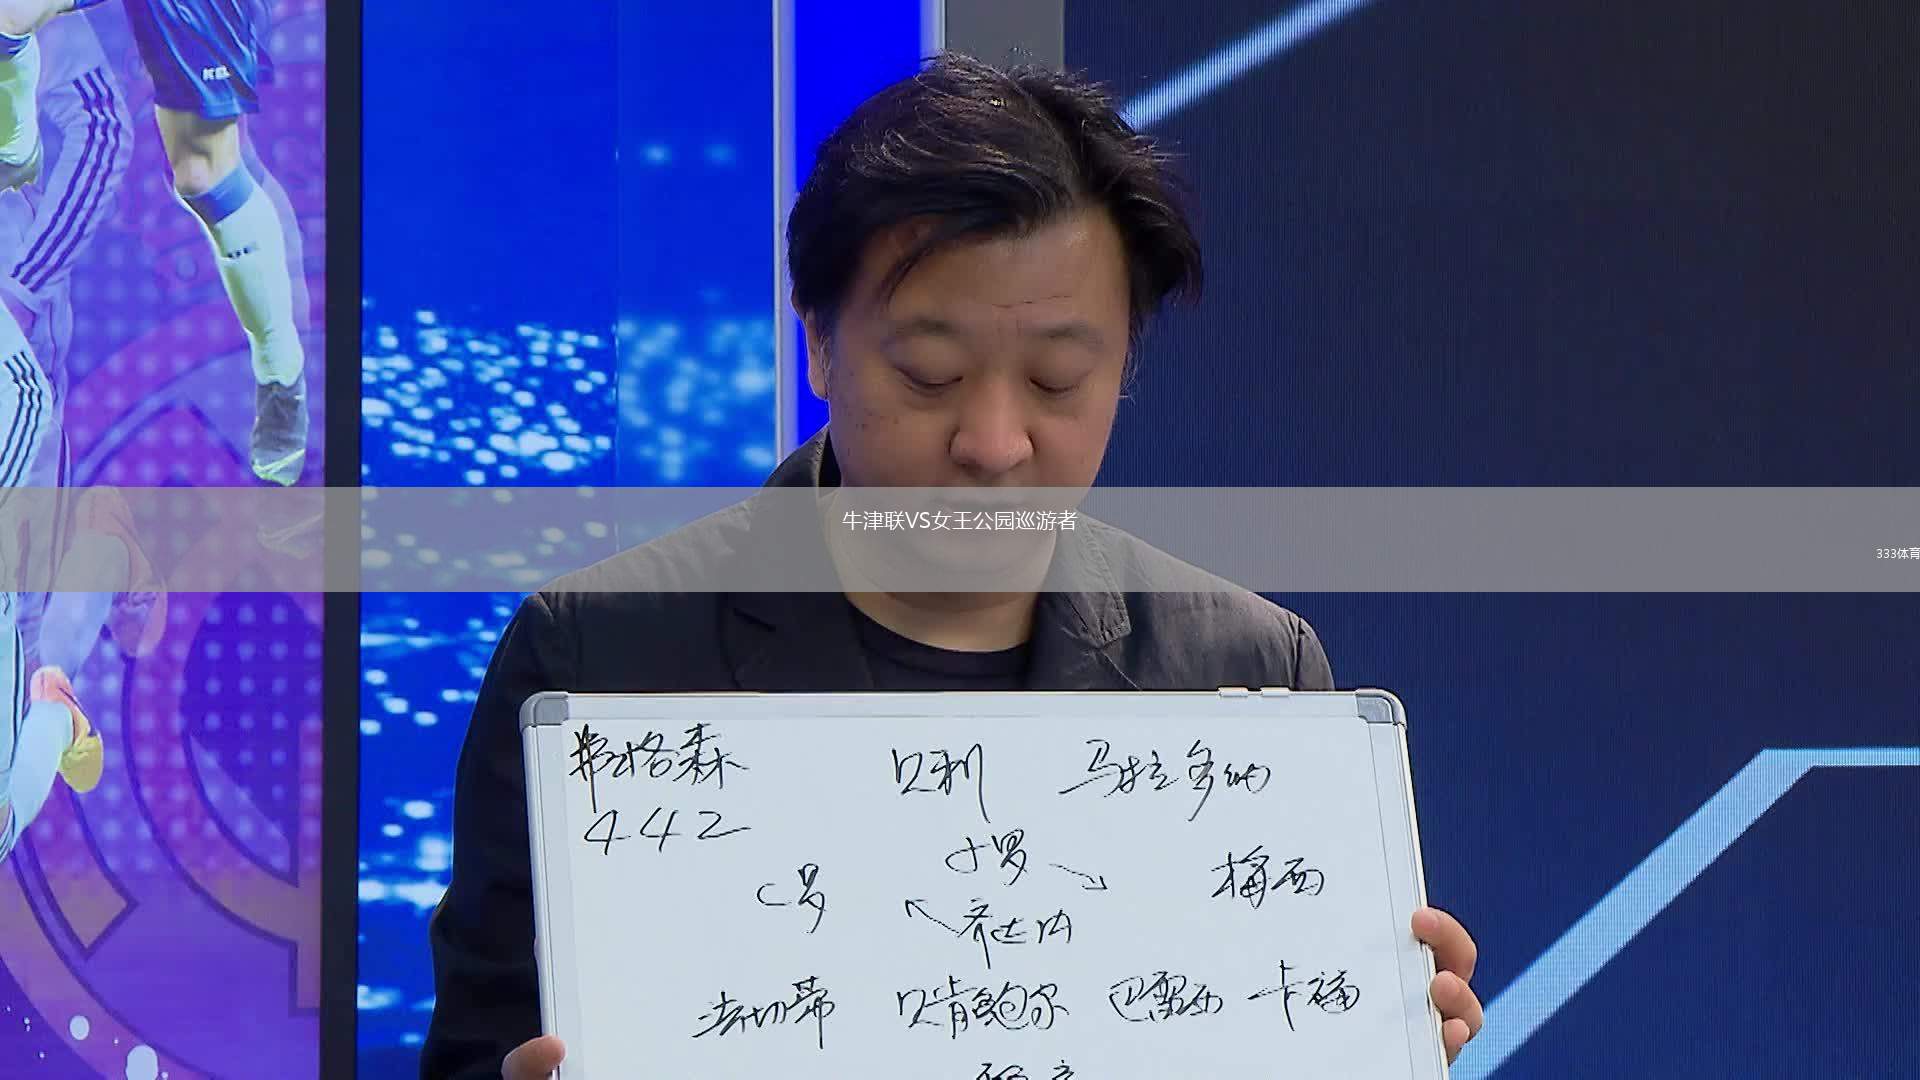 牛津联VS女王公园巡游者
333体育
弗格森 贝利 马拉多纳
442
小罗
C罗 梅西
齐达内
法切蒂 贝肯鲍尔 巴雷西 卡福